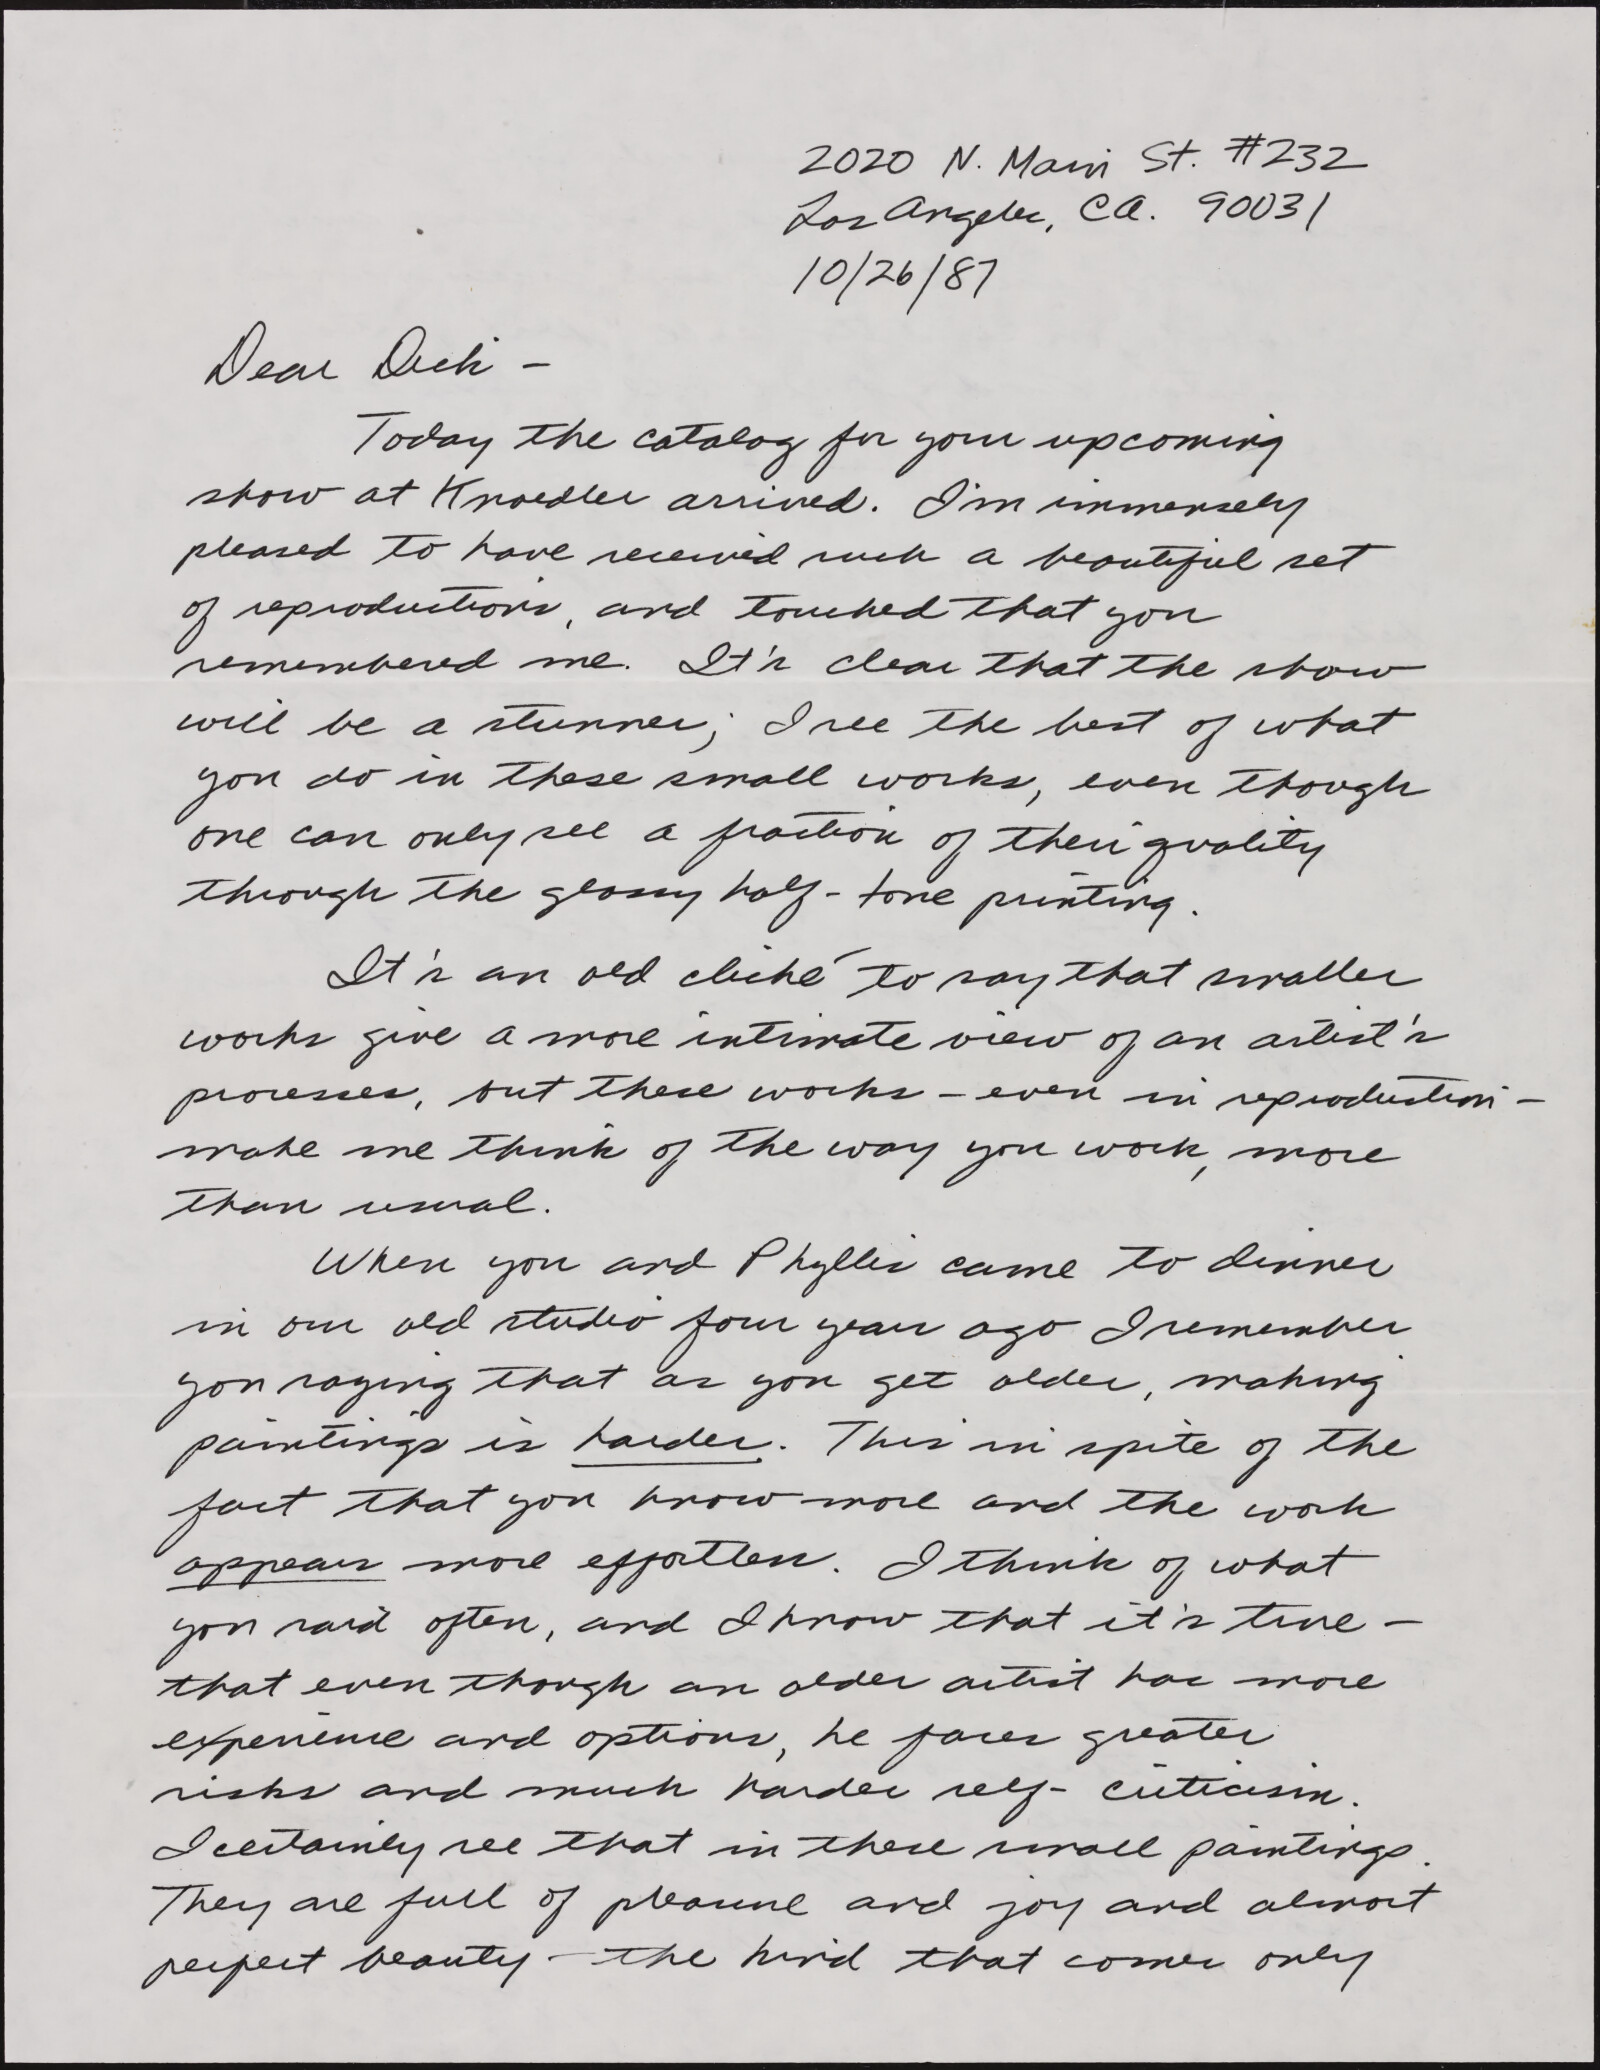 2020 N. Main St. #232
Los Angeles, CA. 90031
10/26/87
Dear Dick –
Today the catalog for your upcoming
show at Knoedler arrived. I'm immensely
pleased to have received such a beautiful set
of reproductions, and touched that you
remembered me. It's clear that the show
will be a stunner; I see the best of what
you do in these small works, even though
one can only see a fraction of their quality
through the glossy half-tone printing.
It's an old cliché to say that smaller
works give a more intimate view of an artist's
processes, but these works – even in reproduction –
make me think of the way you work, more
than usual.
When you and Phyllis came to dinner
in our old studio four years ago I remember
you saying that as you get older, making
paintings is harder. This in spite of the
fact that you know more and the work
appears more effortless. I think of what
you said often, and I know that it's true –
that even though an older artist has more
experience and options, he faces greater
risks and much harder self-criticism.
I certainly see that in these small paintings.
They are full of pleasure and joy and almost
perfect beauty – the kind that comes only